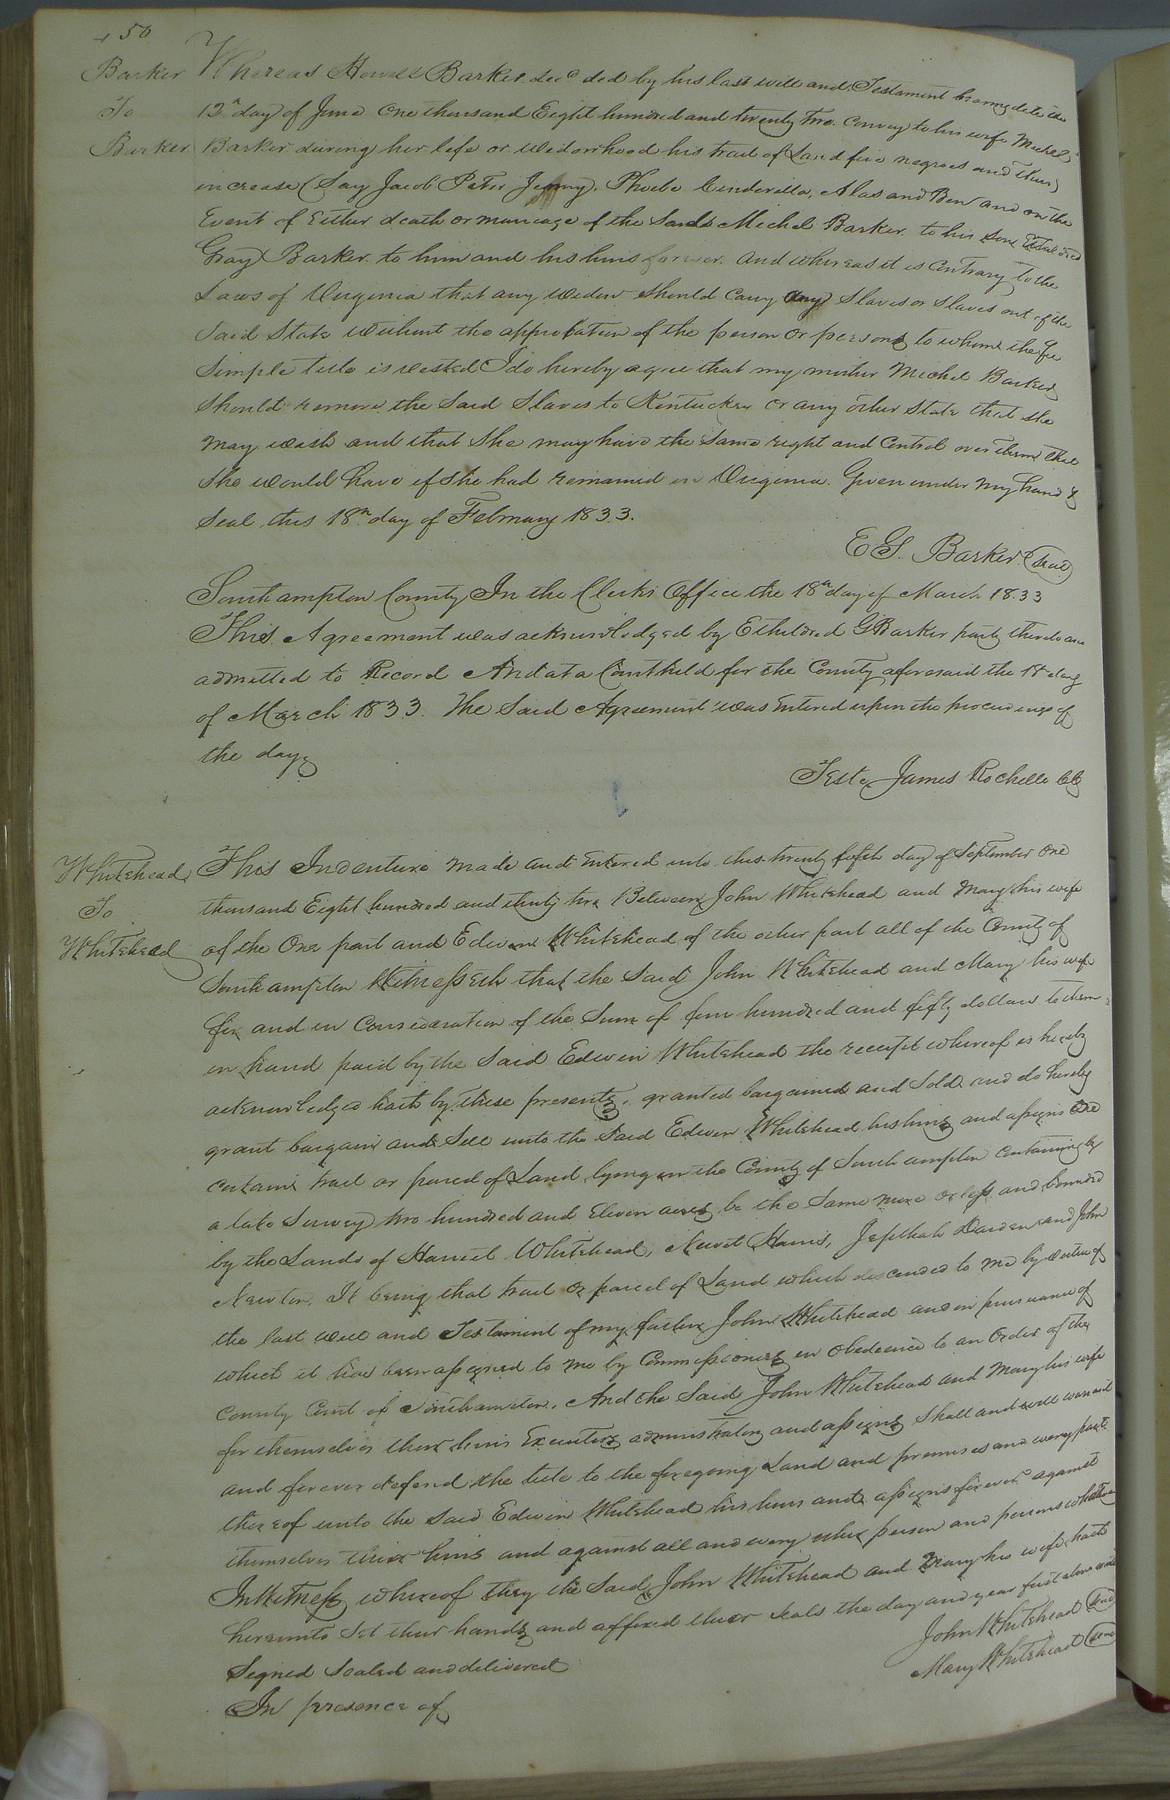 450
Barker
To
Barker
Whereas Howell Barker decd did by his last will and Testament bearing date the
12th day of June One thousand Eight hundred and twenty two. Convey to his wife Michel
Barker during her life or widowhood his tract of Land five negroes and their
increase (Say Jacob Peter Jenny, Phoebe Cinderilla, Alas and Ben and on the
Event of Either death or marriage of the said Michel Barker to his son Etheldred
Gray Barker to him and his heirs forever. And whereas it is Contrary to the
Laws of Virginia that any widow should Carry any Slaves or Slaves out of the
said State without the approbation of the person or persons to whom the fee
Simple title is vested I do hereby agree that my mother Michel Barker
should remove the said Slaves to Kentuckey or any other State that she
may wish and that she may have the same right and Control over them that
she would have if she had remained in Virginia. Given under my hand &
Seal this 18th day of February 1833.
E G. Barker (Seal)
Southampton County In the Clerks Office the 18th day of March 1833
This Agreement was acknowledged by Etheldred G Barker party thereto and
admitted to Record And at a Court held for the County aforesaid the 18 day
of March 1833. The Said Agreement was Entered upon the proceedings of
the day
Teste James Rochelle Clk
Whitehead
To
Whitehead
This Indenture made and Entered into this twenty fifth day of September One
thousand Eight hundred and thirty two Between John Whitehead and Mary his wife
of the One part and Edwin Whitehead of the other part all of the County of
Southampton Witnesseth that the Said John Whitehead and Mary his wife
for and in Consideration of the Sum of four hundred and fifty dollars to them
in hand paid by the Said Edwin Whitehead the receipt whereof is hereby
acknowledged hath by these presents, granted bargained and Sold and do hereby
grant bargain and Sell unto the Said Edwin Whitehead his heirs and assigns One
certain tract or parcel of Land lying in the County of Southampton Containing by
a late Survey two hundred and Eleven acres be the Same more or less and bounded
by the Lands of Harriet Whitehead, Newit Harris, Jepthah Darden and John
Newton. It being that tract or parcel of Land which descended to me by virtue of
the last will and Testament of my father John Whitehead and in pursuance of
which it has been assigned to me by Commissioners in Obedience to an Order of the
County Court of Southampton. And the Said John Whitehead and Mary his wife
for themselves their heirs Executors administrators and assigns Shall and will warrant
and forever defend the title to the foregoing Land and premises and every part
thereof unto the Said Edwin Whitehead his heirs and assigns forever against
themselves their heirs and against all and every other person and persons whatever
In Witness whereof they the Said John Whitehead and Mary his wife hath
hereunto Set their hands and affixed their Seals the day and year first above
Signed Sealed and delivered
In presence of
John Whitehead (Seal)
Mary Whitehead (Seal)